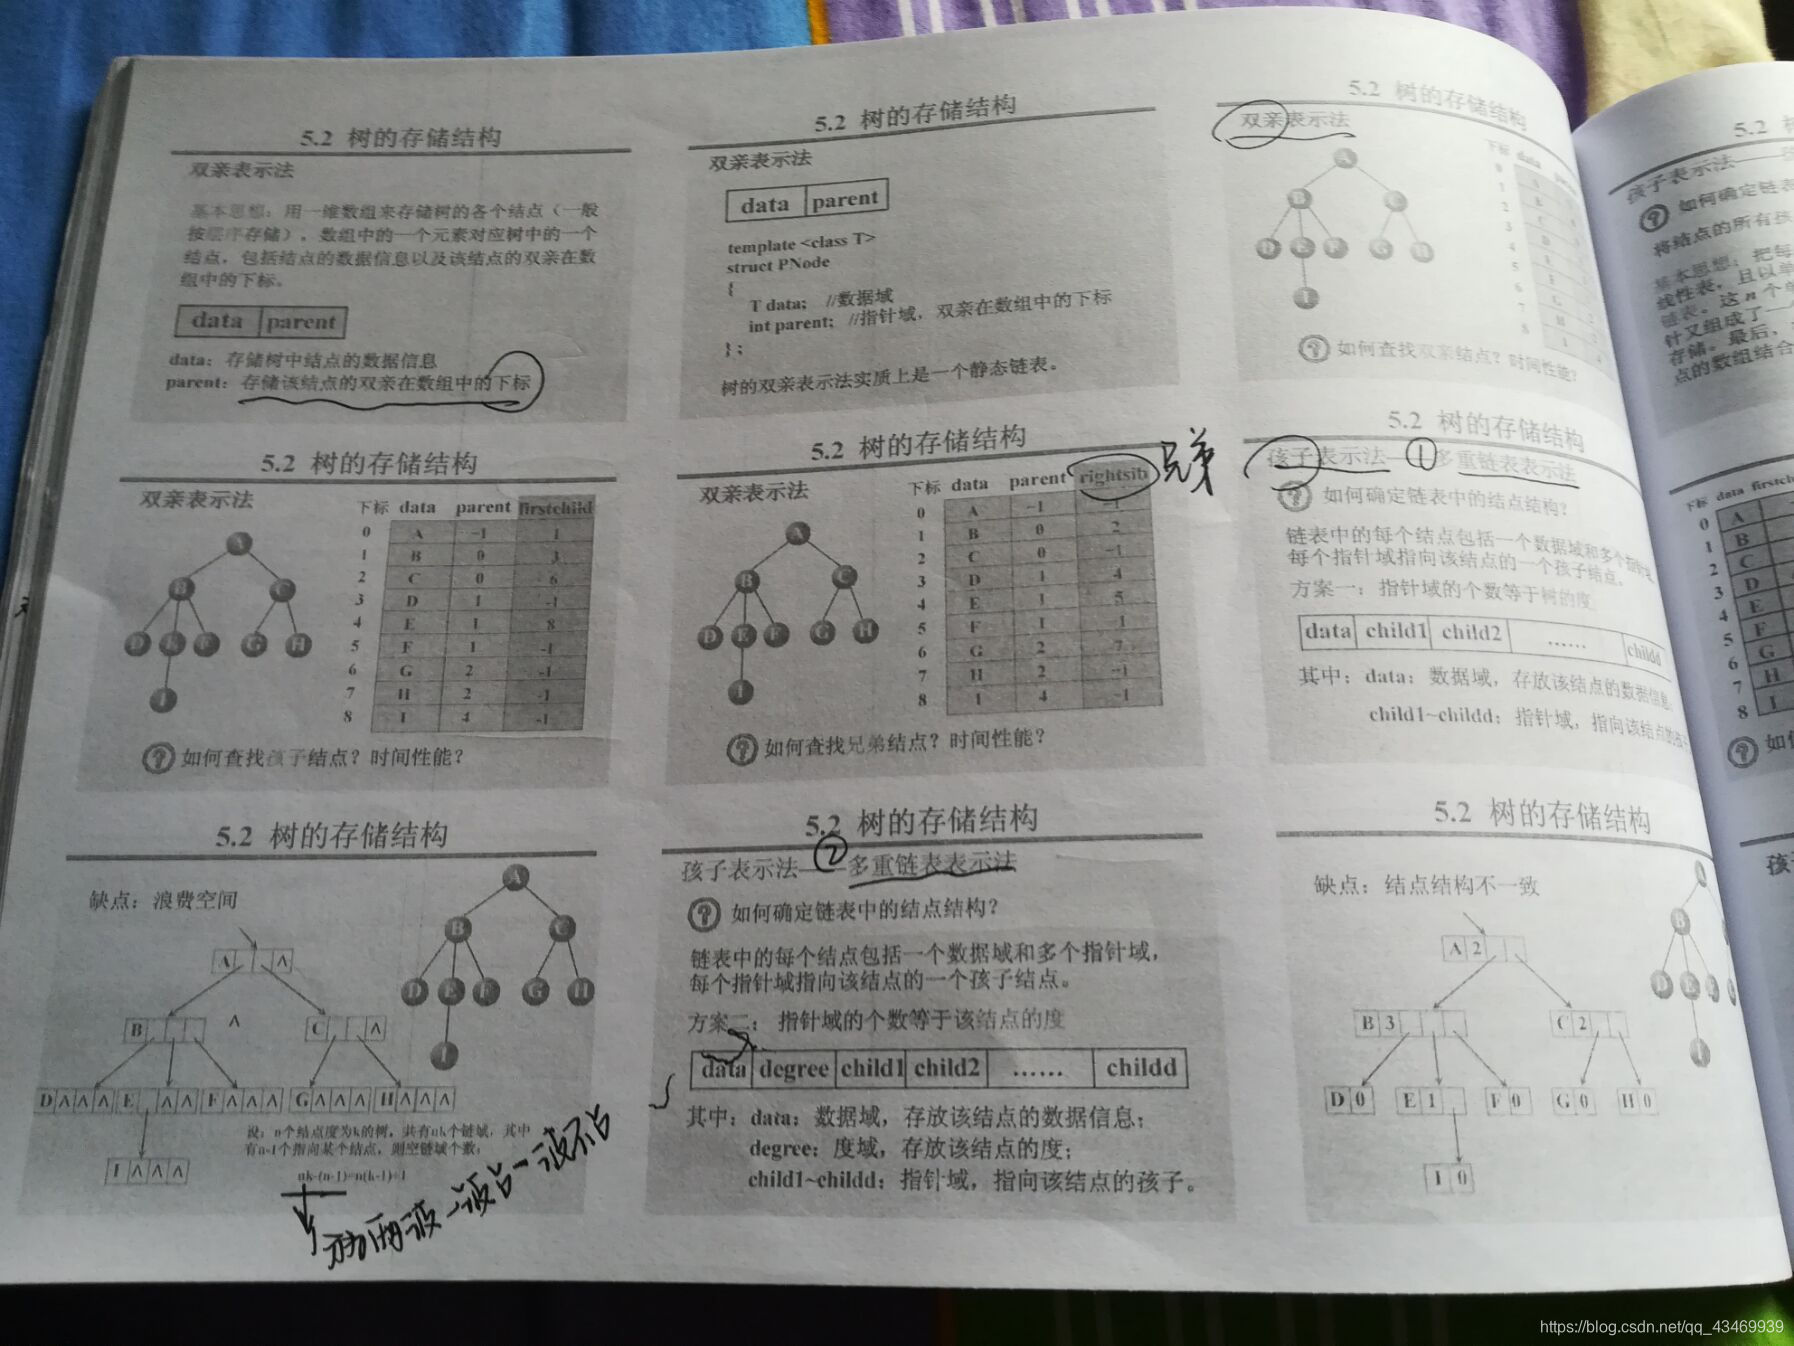 5.2 树的存储结构
双亲表示法
基本思想：用一维数组来存储树的各个结点（一般
按层序存储），数组中的一个元素对应树中的一个
结点，包括结点的数据信息以及该结点的双亲在数
组中的下标。
data parent
data：存储树中结点的数据信息
parent：存储该结点的双亲在数组中的下标
5.2 树的存储结构
双亲表示法
data parent
template <class T>
struct PNode
{
T data; //数据域
int parent; //指针域，双亲在数组中的下标
};
树的双亲表示法实质上是一个静态链表。
5.2 树的存储结构
双亲表示法
下标 data
A
B C
D E F G H
I
如何查找双亲结点？时间性能？
5.2 树的存储结构
双亲表示法
A
B C
D E F G H
I
下标 data parent firstchild
0 A -1 1
1 B 0 3
2 C 0 6
3 D 1 -1
4 E 1 8
5 F 1 -1
6 G 2 -1
7 H 2 -1
8 I 4 -1
如何查找孩子结点？时间性能？
5.2 树的存储结构
双亲表示法
A
B C
D E F G H
I
下标 data parent rightsib 兄弟
0 A -1 -1
1 B 0 2
2 C 0 -1
3 D 1 4
4 E 1 5
5 F 1 -1
6 G 2 7
7 H 2 -1
8 I 4 -1
如何查找兄弟结点？时间性能？
5.2 树的存储结构
孩子表示法 ① 多重链表表示法
如何确定链表中的结点结构？
链表中的每个结点包括一个数据域和多个指针域，
每个指针域指向该结点的一个孩子结点。
方案一：指针域的个数等于树的度
data child1 child2 …… childd
其中：data：数据域，存放该结点的数据信息；
child1~childd：指针域，指向该结点的孩子
5.2 树的存储结构
缺点：浪费空间
A ∧
B ∧
C ∧
D∧∧∧ E ∧∧ F∧∧∧ G∧∧∧ H∧∧∧
I∧∧∧
A
B C
D E F G H
I
设：n个结点度为k的树，共有nk个链域，其中
有n-1个指向某个结点，则空链域个数：
nk-(n-1)=n(k-1)+1
两波 一波占 一波不占
5.2 树的存储结构
孩子表示法—②多重链表表示法
如何确定链表中的结点结构？
链表中的每个结点包括一个数据域和多个指针域，
每个指针域指向该结点的一个孩子结点。
方案二：指针域的个数等于该结点的度
data degree child1 child2 …… childd
其中：data：数据域，存放该结点的数据信息；
degree：度域，存放该结点的度；
child1~childd：指针域，指向该结点的孩子。
5.2 树的存储结构
缺点：结点结构不一致
A 2
B 3 C 2
D 0 E 1 F 0 G 0 H 0
I 0
A
B
D E
I
5.2
孩子表示法
如何确定链表
将结点的所有孩
基本思想：把每
线性表，且以单
链表。这n个单
针又组成了一
存储。最后，
点的数组结合
下标 data firstch
0 A
1 B
2 C
3 D
4 E
5 F
6 G
7 H
8 I
https://blog.csdn.net/qq_43469939